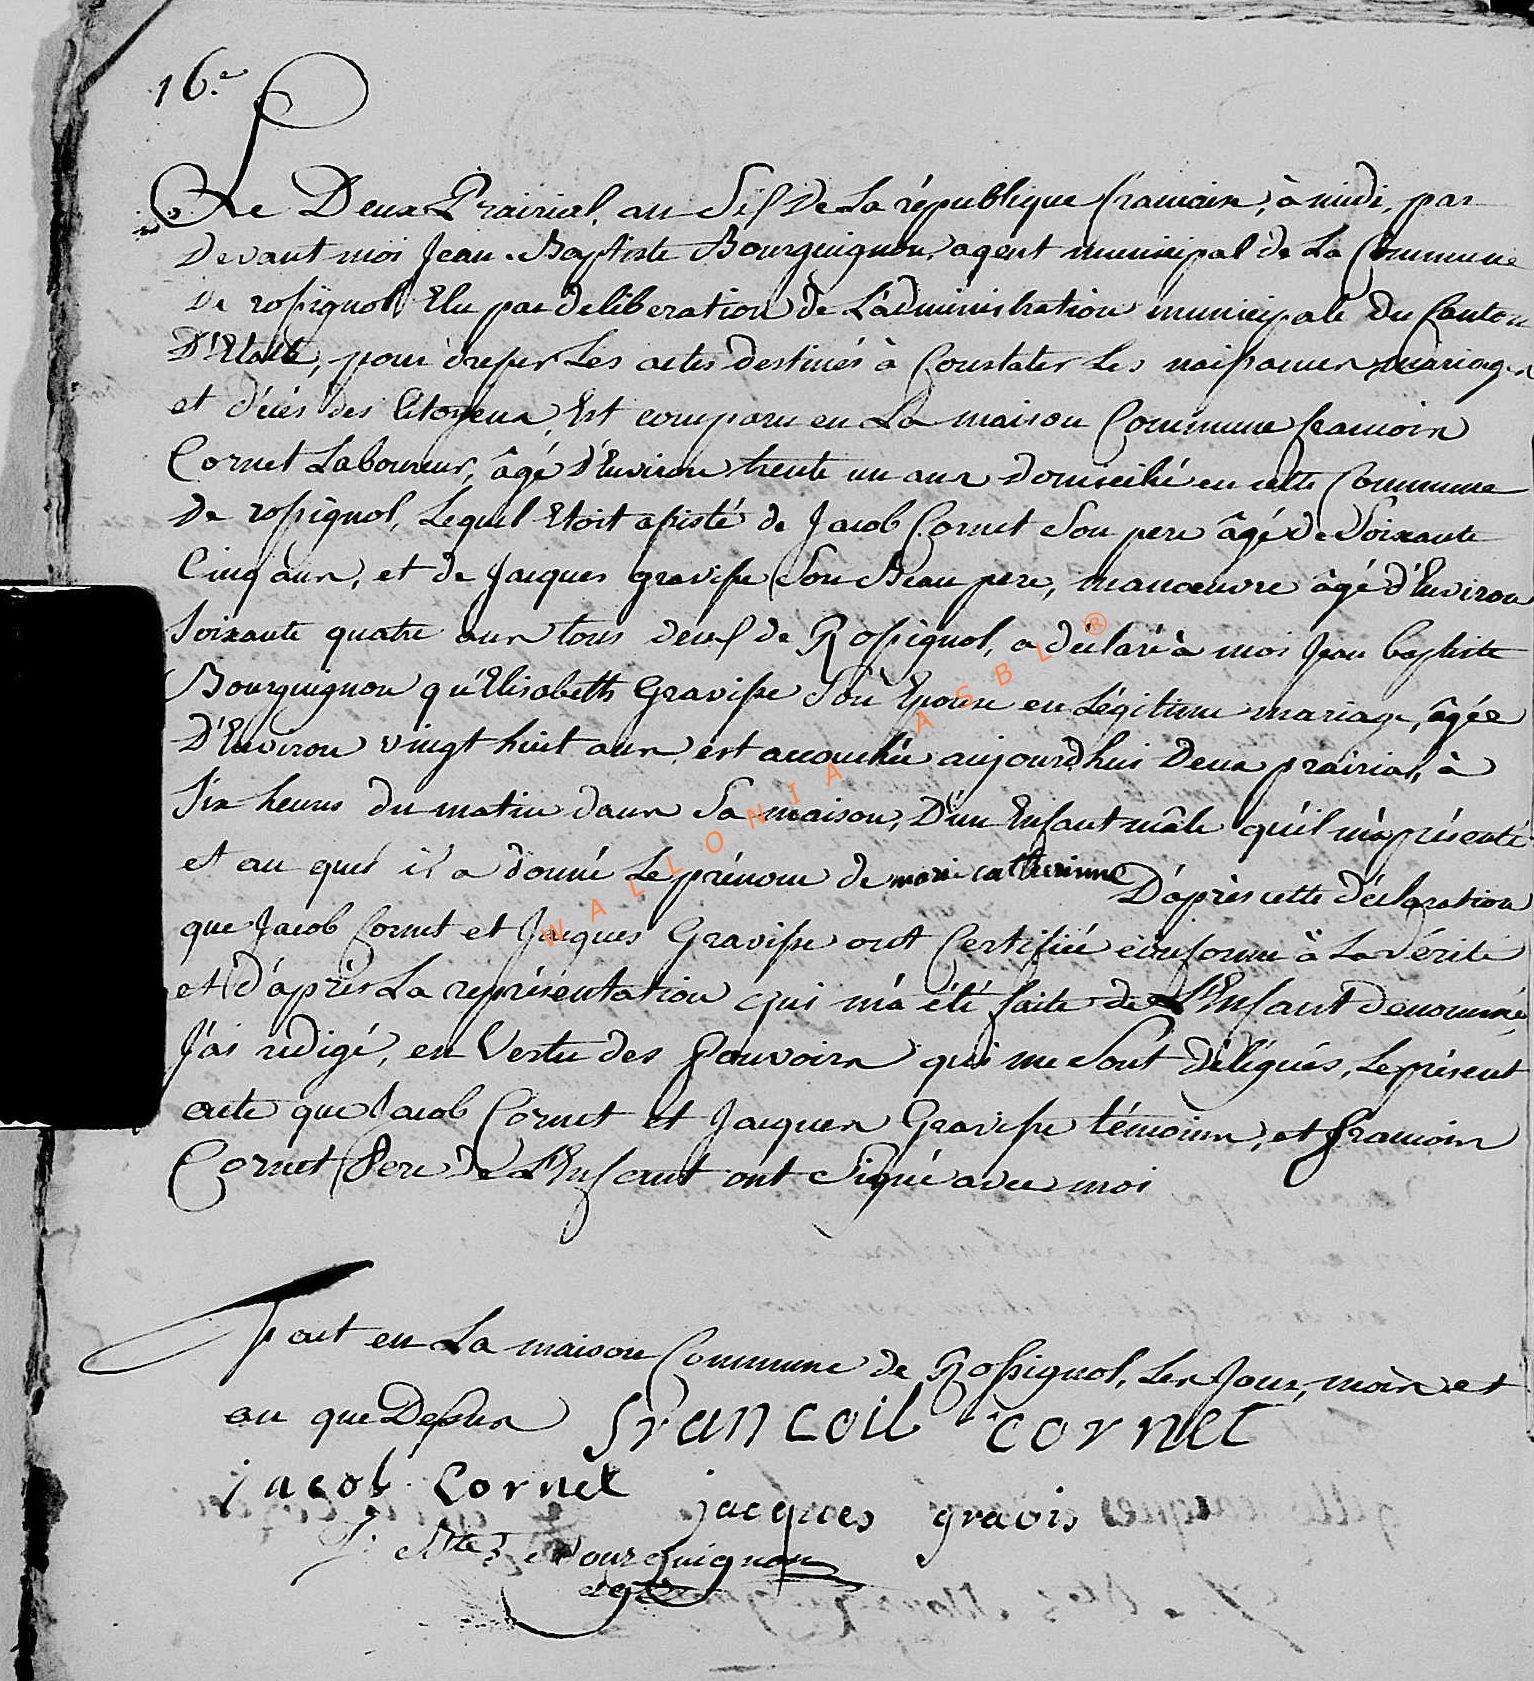 16.e
Le Deux Prairial, an Six De La république francoise, à midi, par
Devant moi Jean-Baptiste Bourguignon, agent municipal de La Commune
De rossignol Elu par deliberation de L'administration municipale Du Canton
D'Etalle, pour dresser Les actes destinés à Constater Les naissances, mariages
et décès des Citoyens, Est comparu en La maison Commune francois
Cornet Laboureur, âgé d'Environ trente un ans domicilié en cette Commune
De rossignol, Lequel Etoit assisté de Jacob Cornet Son pere âgé de Soixante
Cinq ans, et de Jacques gravisse Son Beau pere, manoeuvre âgé d'Environ
Soixante quatre ans tous deux de Rossignol, a déclaré à moi Jean baptiste
Bourguignon qu'Elisabeth Gravisse Son Epouse en Légitime mariage, âgée
D'Environ vingt huit ans, est accouchée aujourd'hui Deux prairial, à
Six heures du matin dans Sa maison, D'un Enfant mâle qu'il m'a présenté
et au quel il a donné Le prénom de marie catherinne D'après cette déclaration
que Jacob Cornet et Jacques Gravisse ont Certifiée conforme à La vérité
et d'après La représentation qui m'a été faite de L'Enfant denommé,
J'ai rédigé, en Vertu des Pouvoirs qui me Sont délégués, Le présent
acte que Jacob Cornet et Jacques Gravisse témoins, et francois
Cornet Pere de L'Enfant ont Signé avec moi
Fait en La maison Commune de Rossignol, Les Jour, mois et
an que Dessus francois cornet
jacob cornet jacques gravis
J. Btes Bourguignon
agt
WALLONIA ASBL ®